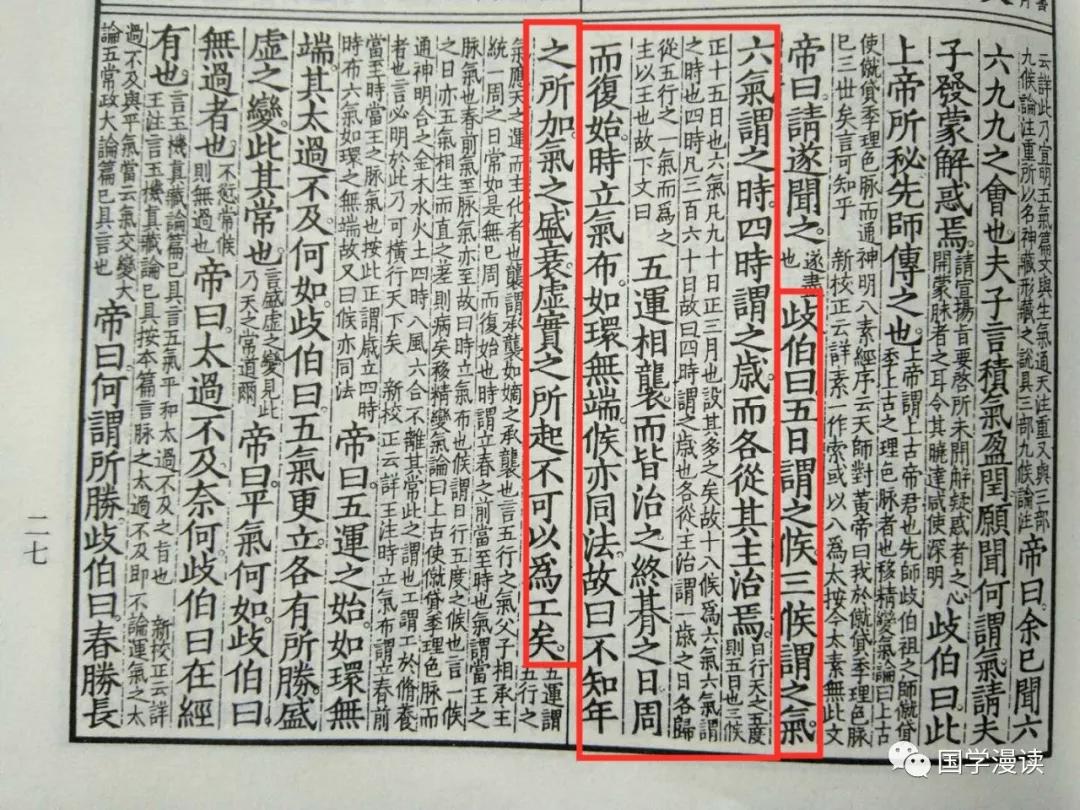 云詳此乃宣明五氣篇文與生氣通天注重又與三部
九候論注重所以名神藏形藏之說具三部九候論注
帝曰余已聞六
六九九之會也夫子言積氣盈閏願聞何謂氣請夫
子發蒙解惑焉。
請宣揚旨要啓所未聞解疑惑者之心
開蒙昧者之耳令其曉達咸使深明
歧伯曰此
上帝所秘先師傳之也
上帝謂上古帝君也先師歧伯祖之師僦貸
季上古之理色脉者也移精變氣論曰上古
使僦貸季理色脉而通神明八素經序云天師對黃帝曰我於僦貸季理色脉
已三世矣言可知乎 新校正云詳素一作索或以八爲太按今太素無此文
帝曰請遂聞之。
遂盡
也
歧伯曰五日謂之候三候謂之氣
六氣謂之時四時謂之歲而各從其主治焉。
日行天之五度
則五日也三候
正十五日也六氣凡九十日正三月也設其多之矣故十八候爲六氣六氣謂
之時也四時凡三百六十日故曰四時謂之歲也各從主治謂一歲之日各歸
從五行之一氣而爲之
主以王也故下文曰
五運相襲而皆治之終朞之日周
而復始時立氣布如環無端候亦同法故曰不知年
之所加氣之盛衰虛實之所起不可以爲工矣。
五運謂
五行之
氣應天之運而主化者也襲謂承襲如嫡之承襲也言五行之氣父子相承主
統一周之日常如是無已周而復始也時謂立春之前當至時也氣謂當王之
脉氣也春前氣至脉氣亦至故曰時立氣布也候謂日行五度之候也言一候
之日亦五氣相生而直之差則病矣移精變氣論曰上古使僦貸季理色脉而
通神明合之金木水火土四時八風六合不離其常此之謂也工謂工於脩養
者也言必明於此乃可橫行天下矣 新校正云詳王注時立氣布謂立春前
當至時當王之脉氣也按此正謂歲立四時
時布六氣如環之無端故又曰候亦同法
帝曰五運之始如環無
端其太過不及何如歧伯曰五氣更立各有所勝盛
虛之變此其常也
言盛虛之變見此
乃天之常道爾
帝曰平氣何如歧伯曰
無過者也
不愆常候
則無過也
帝曰太過不及奈何歧伯曰在經
有也
言玉機真藏論篇已具言五氣平和太過不及之旨也 新校正云詳
王注言玉機真藏論已具按本篇言脉之太過不及即不論運氣之太
過不及與平氣當云氣交變大
論五常政大論篇已具言也
帝曰何謂所勝歧伯曰春勝長
二七
国学漫读